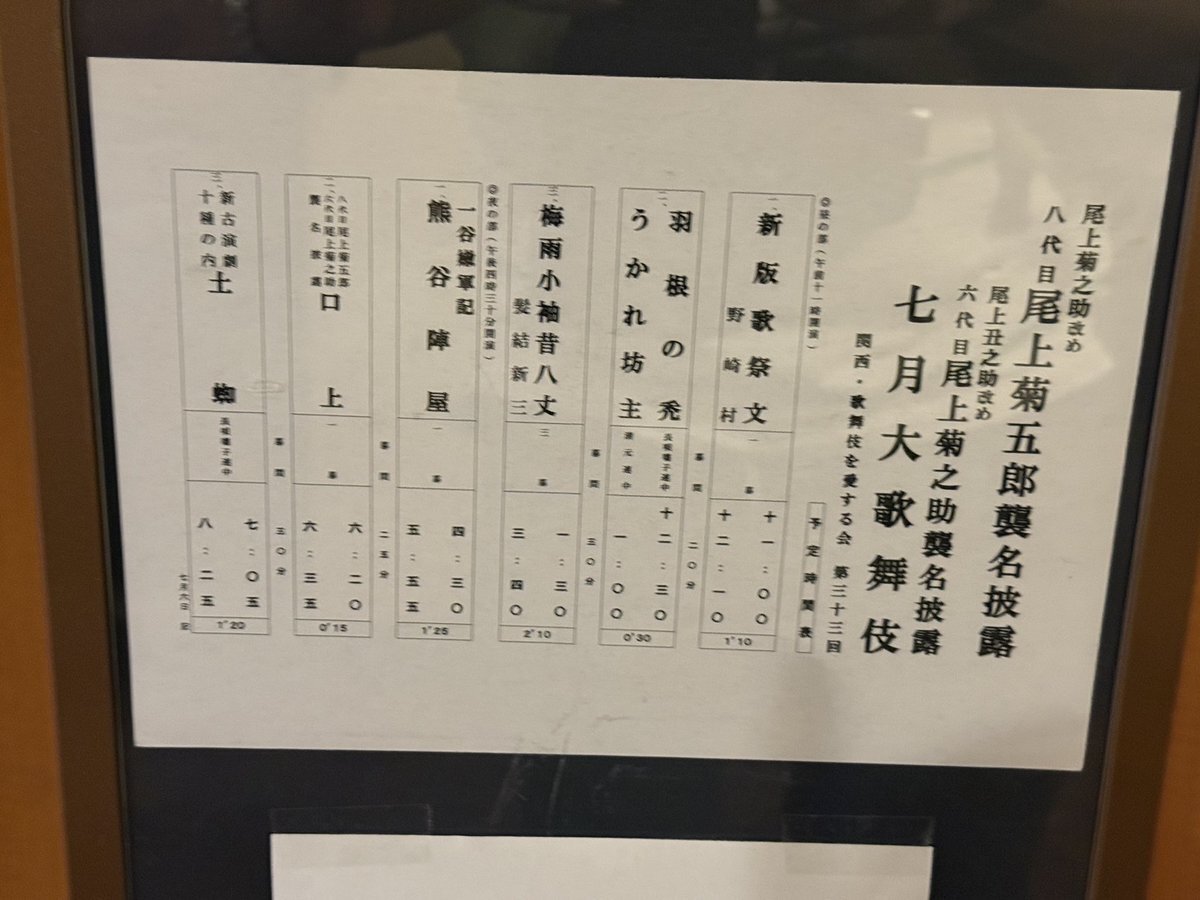 尾上菊之助改め
八代目 尾上菊五郎襲名披露
尾上丑之助改め
六代目 尾上菊之助襲名披露
七月大歌舞伎
関西・歌舞伎を愛する会 第三十三回
予定時間表
◎昼の部（午前十一時開演）
一、新版歌祭文
野崎村
一幕
十一：〇〇
十二：一〇
1"10
幕間 二〇分
二、羽根の禿
うかれ坊主
長唄囃子連中
清元連中
十二：三〇
一：〇〇
0"30
幕間 三〇分
三、梅雨小袖昔八丈
髪結新三
三幕
一：三〇
三：四〇
2"10
◎夜の部（午後四時三十分開演）
一、一谷嫩軍記
熊谷陣屋
一幕
四：三〇
五：五五
1"25
幕間 二五分
二、八代目尾上菊五郎
六代目尾上菊之助
襲名披露
口上
一幕
六：二〇
六：三五
0"15
幕間 三〇分
三、新古演劇
十種の内
土蜘
長唄囃子連中
七：〇五
八：二五
1"20
七月六日 定